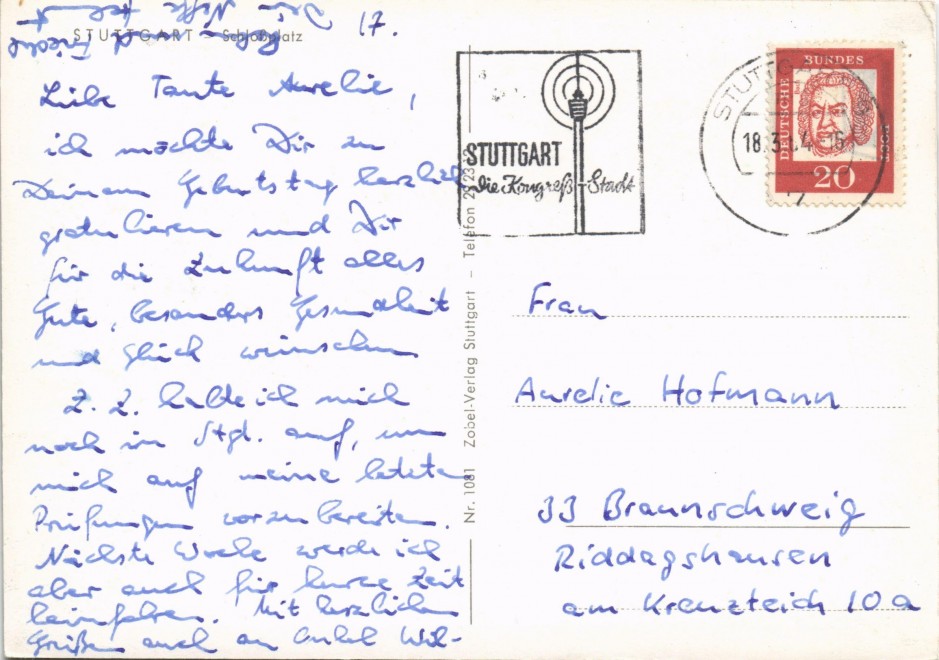 STUTTGART – Schloßplatz
17.
Liebe Tante Aurelie,
ich möchte Dir zu
Deinem Geburtstag herzlich
gratulieren und Dir
für die Zukunft alles
Gute, besonders Gesundheit
und Glück wünschen
Z. Z. halte ich mich
noch in Stgt. auf, um
mich auf meine letzten
Prüfungen vorzubereiten.
Nächste Woche werde ich
aber auch für kurze Zeit
heimfahren. Mit herzlichen
Grüßen auch an Onkel Wil-
helm und
Dein Neffe
Nr. 1081 Zobel-Verlag Stuttgart – Telefon
STUTTGART
die Kongreß-Stadt
STUTTGART
18.3. 16
DEUTSCHE
BUNDES
20
Frau
Aurelie Hofmann
33 Braunschweig
Riddagshausen
am Kreuzteich 10a